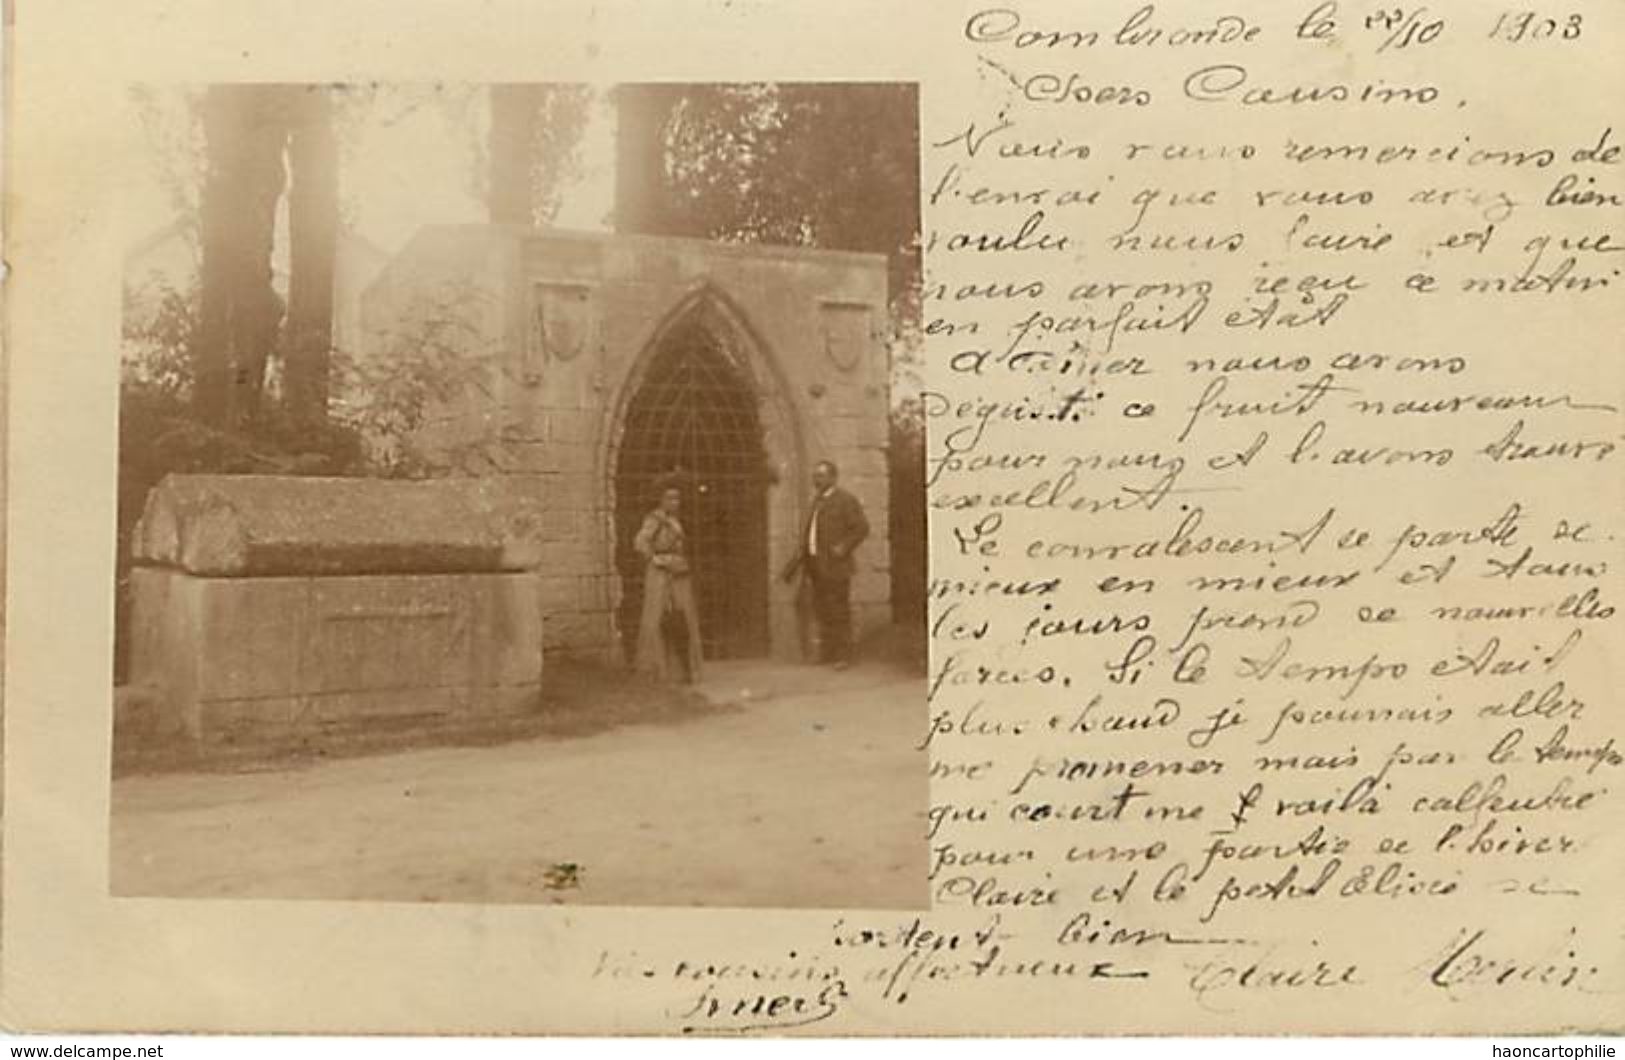 Combronde le 22/10 1903
Chers Cousins,
Nous vous remercions de
l'envoi que vous avez bien
voulu nous faire et que
nous avons reçu ce matin
en parfait état
A dîner nous avons
dégusté ce fruit nouveau
pour nous et l'avons trouvé
excellent.
Le convalescent se porte de
mieux en mieux et tous
les jours prend de nouvelles
forces. Si le temps était
plus chaud je pourrais aller
me promener mais par le temps
qui court me voilà calfeutré
pour une partie de l'hiver
Claire et le petit Elisée se
portent bien
Vos cousins affectueux Claire
www.delcampe.net
haoncartophilie